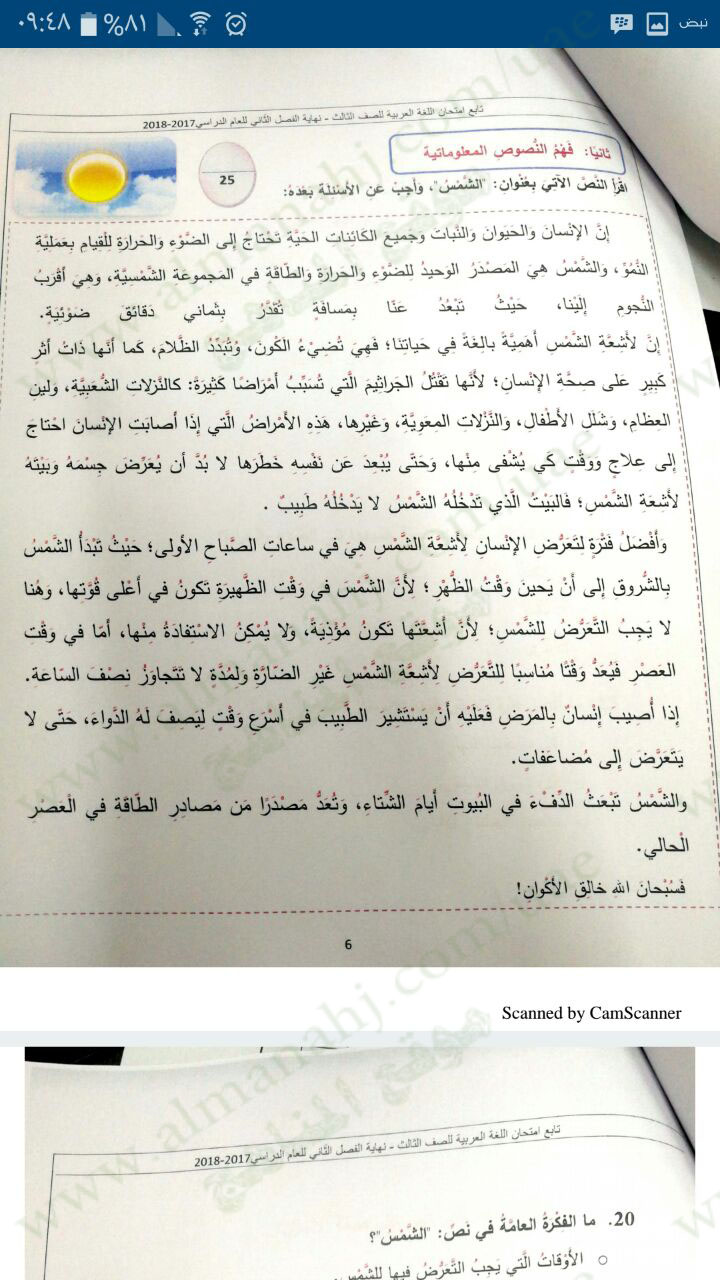 ٠٩:٤٨
%٨١
نبض
تابع امتحان اللغة العربية للصف الثالث - نهاية الفصل الثاني للعام الدراسي2017-2018
ثانيًا: فَهْمُ النُّصوصِ المعلوماتية
25
اقرأ النصَّ الآتيَ بعُنوان: "الشَّمْسُ"، وأجبْ عن الأسئلة بعدَهُ:
إنَّ الإنْسان والحَيوان والنَّبات وجَميع الكائنات الحيَّة تَحْتاجُ إلى الضوْء والحَرارة لِلْقيام بعَمليَّة
النُّموّ، والشَّمْسُ هيَ المَصْدَرُ الوحيدُ للضَّوْءِ والحَرارةِ والطّاقَةِ في المَجموعَةِ الشَّمْسيَّة، وهيَ أقْربُ
النُّجومِ إليْنا، حَيْثُ تَبْعُدُ عَنّا بِمَسافَةٍ تُقدَّرُ بِثَماني دَقائقَ ضَوْئيّةٍ.
إنَّ لأشعَّة الشَّمْسِ أهَميَّةً بالِغَةً في حَياتِنا؛ فهِيَ تُضيءُ الكَونَ، وتُبَدِّدُ الظَّلامَ، كَما أنَّها ذاتُ أثَرٍ
كَبيرٍ على صِحَّةِ الإنْسانِ؛ لأنَّها تَقْتُلُ الجَراثيمَ الَّتي تُسَبِّبُ أمْراضًا كَثيرَةً: كالنَّزلات الشُّعَبيَّة، ولينِ
العِظامِ، وشَلَلِ الأطْفالِ، والنَّزلات المِعويَّة، وغَيْرِها، هَذِهِ الأمْراضُ الَّتي إذَا أصابَتِ الإنْسانَ احْتاجَ
إلى عِلاجٍ ووقْتٍ كَي يُشْفى مِنْها، وحَتّى يُبْعِدَ عَن نفْسِهِ خَطَرَها لا بُدَّ أن يُعَرِّضَ جِسْمَهُ وبَيْتَهُ
لأشعَةِ الشَّمْسِ؛ فالبَيْتُ الَّذي تَدْخُلُهُ الشَّمْسُ لا يَدْخُلُهُ طَبيبٌ .
وأفْضَلُ فَتْرَةٍ لتَعَرُّضِ الإنْسانِ لأشِعَّةِ الشَّمْسِ هيَ في ساعاتِ الصَّباحِ الأولى؛ حَيْثُ تَبْدَأُ الشَّمْسُ
بالشُّروقِ إلى أنْ يَحينَ وَقْتُ الظُّهْرِ؛ لأنَّ الشَّمْسَ في وَقْتِ الظَّهيرَةِ تَكونُ في أعْلى قُوَّتِها، وهُنا
لا يَجِبُ التَّعَرُّضُ لِلشَّمْسِ؛ لأنَّ أشعَّتَها تَكونُ مُؤذيَةً، ولا يُمْكِنُ الاستِفادَةُ مِنْها، أمَّا في وَقْتِ
العَصْرِ فيُعَدُّ وقْتًا مُناسِبًا للتَّعَرُّضِ لأشعَّةِ الشَّمْسِ غَيْرِ الضّارَّةِ ولِمُدَّةٍ لا تَتَجاوَزُ نِصْفَ السّاعَة.
إذا أُصيبَ إنْسانٌ بالمَرَضِ فَعَلَيْهِ أنْ يَسْتَشيرَ الطَّبيبَ في أسْرَعِ وقْتٍ لِيَصِفَ لَهُ الدَّواءَ، حَتّى لا
يَتَعَرَّضَ إلى مُضاعَفاتٍ.
والشَّمْسُ تَبْعَثُ الدِّفْءَ في البُيوتِ أيامَ الشِّتاءِ، وتُعَدُّ مَصْدَرًا مَن مَصادِرِ الطّاقَةِ في الْعَصْرِ
الْحالي.
فَسُبْحانَ اللهِ خالِقِ الأكْوانِ!
6
Scanned by CamScanner
تابع امتحان اللغة العربية للصف الثالث - نهاية الفصل الثاني للعام الدراسي2017-2018
20. ما الفِكْرةُ العامَّةُ في نَصّ: "الشَّمْسُ"؟
الأوْقاتُ الَّتي يَجِبُ التَّعَرُّضُ فيها للشَّمْسِ.
www.almanahj.com/uae
موقع المناهج